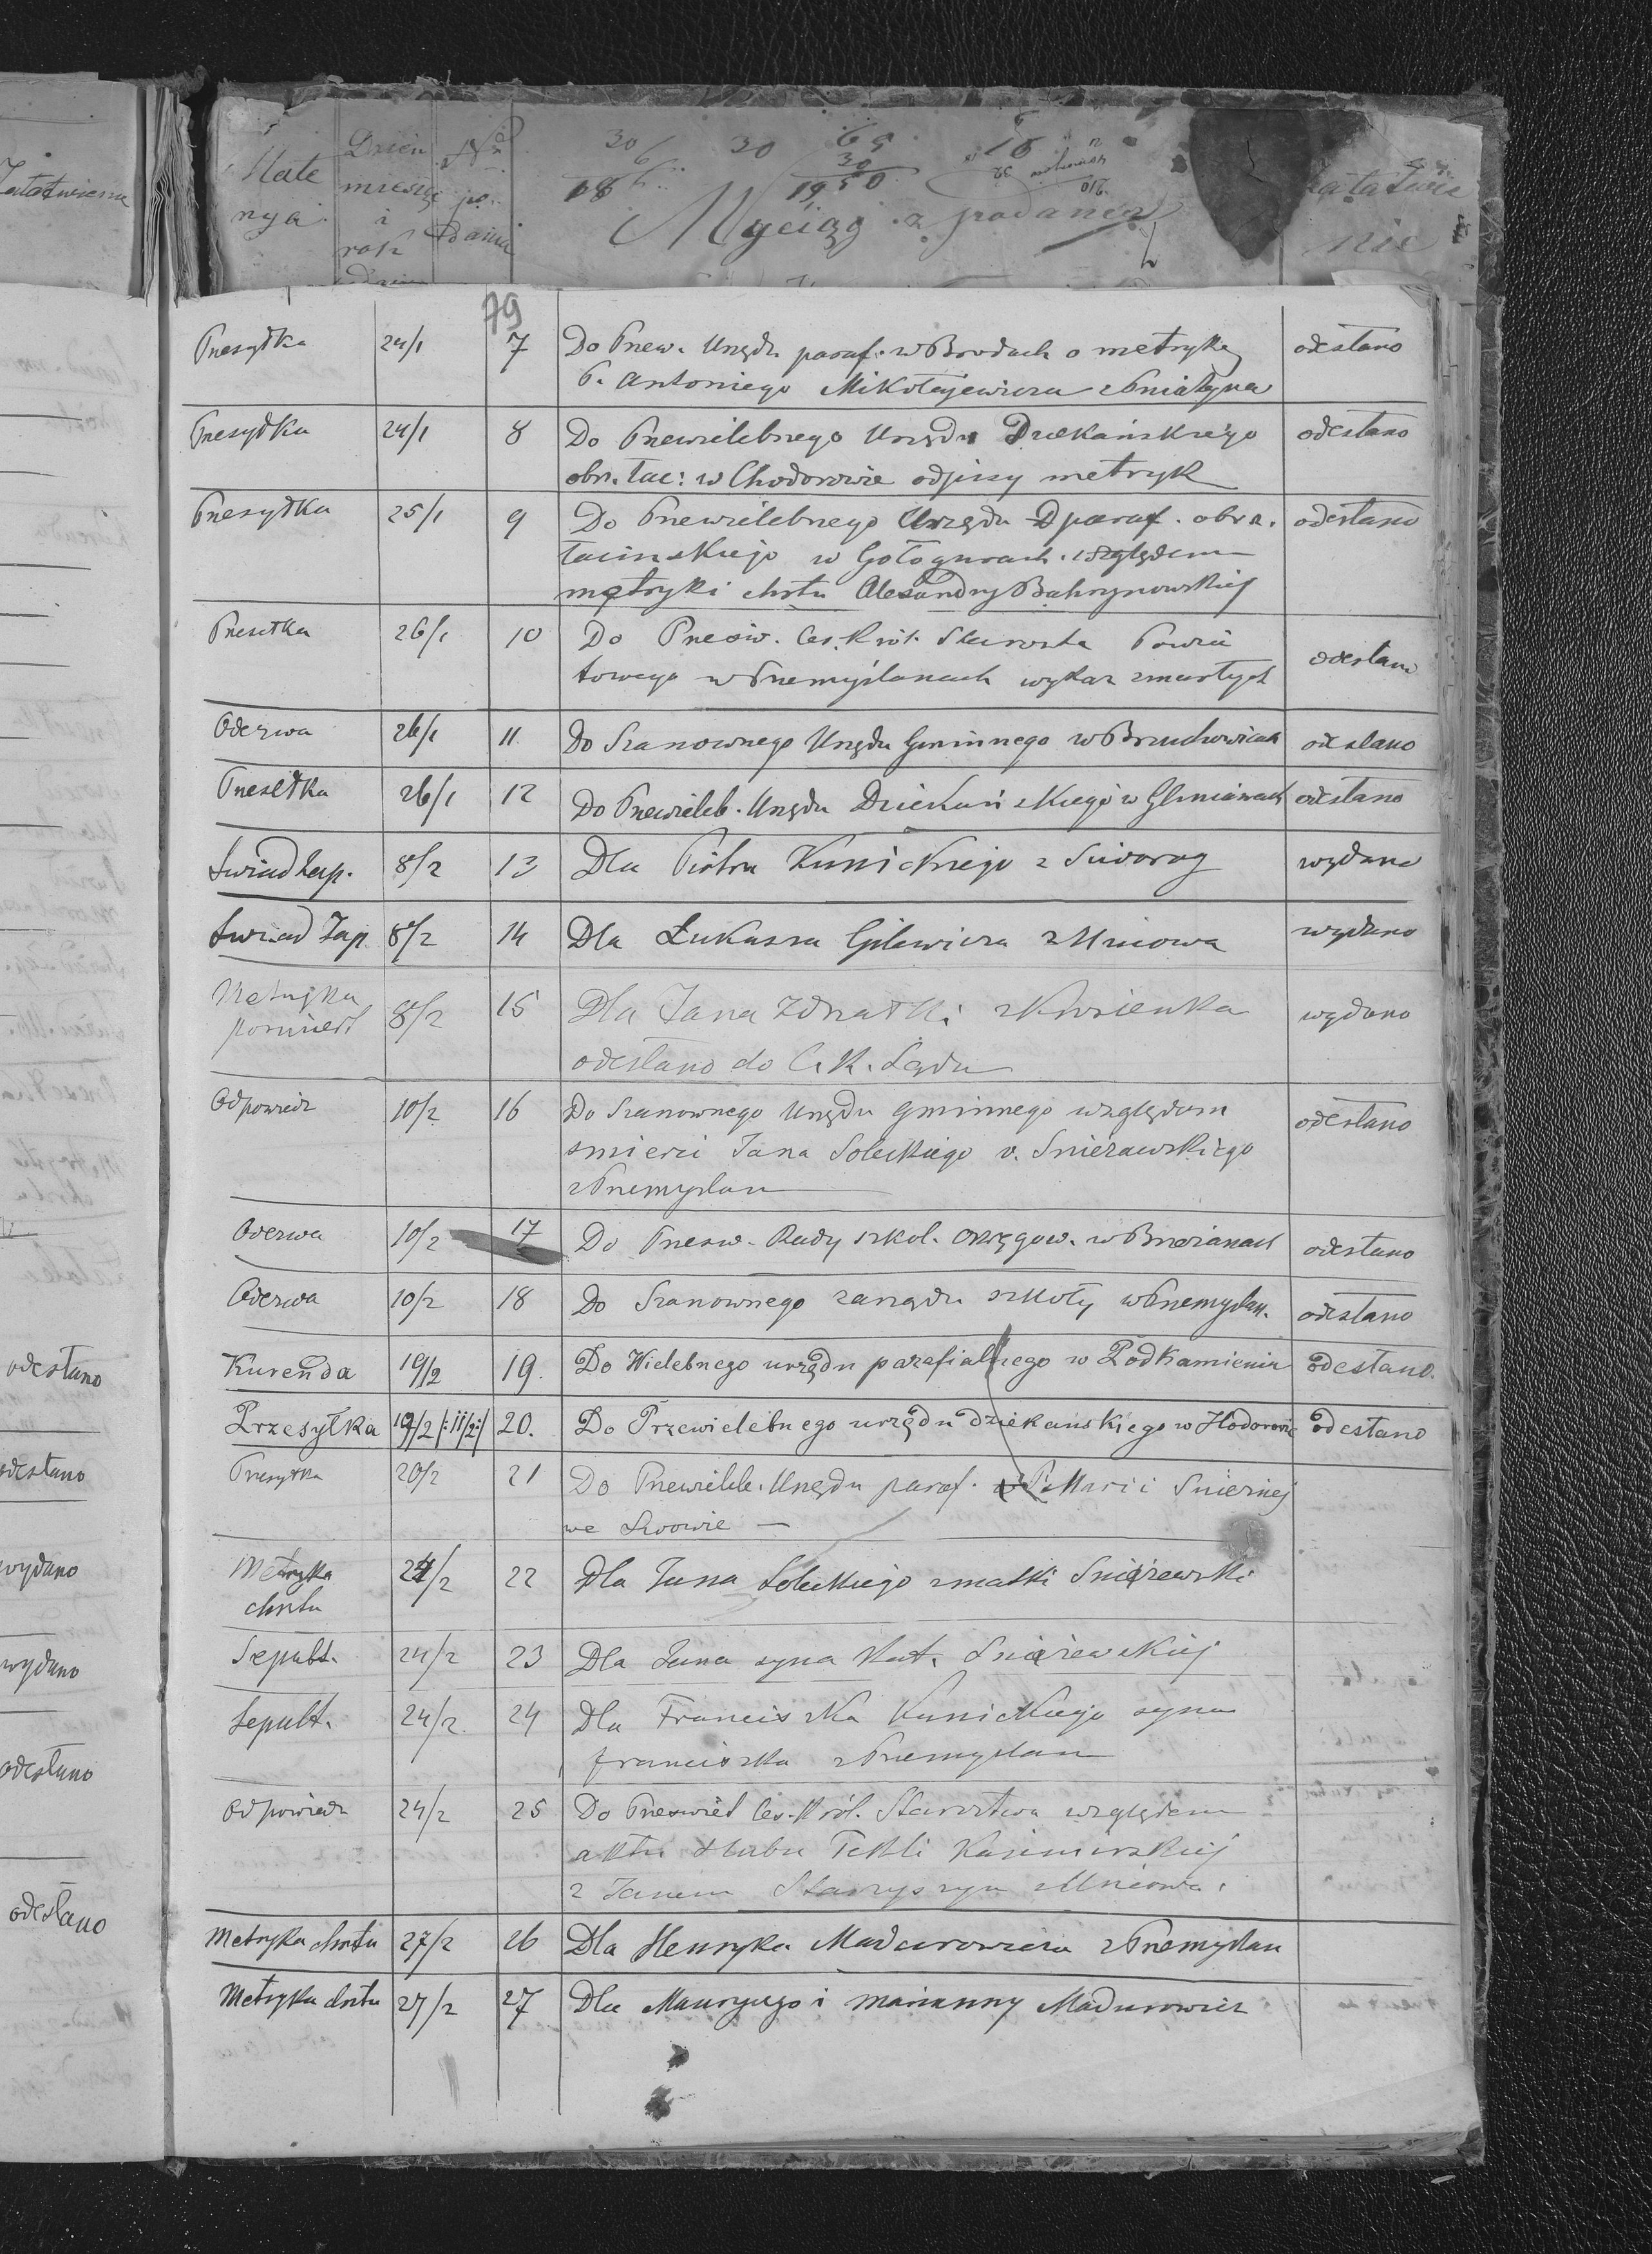 Mate
ryja
Dzień
miesiąc
i
rok
No
po
dania
30
30
69
30
18
1950
Wyciąg z podaneg
załatwie
nie
Załatwienie
79
Przesyłka 24/1 7 Do Przew. Urzędu paraf. w Brodach o metrykę odesłano
Antoniego Mikołajewicza z Śniatyna
Przesyłka 24/1 8 Do Przewielebnego Urzędu Dziekańskiego odesłano
obrz. łac: w Chodorowie odpisy metryk
Przesyłka 25/1 9 Do Przewielebnego Urzędu paraf. obrz. odesłano
łacinskiego w Gołogurach względem
metryki chrztu Alesandry Bahrynowskiej
Przesełka 26/1 10 Do Przesw. Ces. Król. Starosta Powia odesłano
towego w Przemyślanach wykaz zmarłych
Odezwa 26/1 11 Do Szanownego Urzędu Gminnego w Brzuchowicach odesłano
Przesełka 26/1 12 Do Przewieleb. Urzędu Dziekańskiego w Glinianach odesłano
Świad Zap. 8/2 13 Dla Piotra Kunickiego z wydano
Świad Zap 8/2 14 Dla Łukasza Gilewicza z Uniowa wydano
Metryka 8/2 15 Dla Jana wydano
pośmiert odesłano do C. K. Sądu
Odpowiedz 10/2 16 Do Szanownego Urzędu gminnego względem odesłano
smierci Jana Soleckiego v. Snieżawskiego
z Przemyslan
Odezwa 10/2 17 Do Przesw. Rady szkol. okręgow. w Brzeżanach odesłano
Odezwa 10/2 18 Do Szanownego zarządu szkoły w Przemyslan. odesłano
Kurenda 19/2 19. Do Wielebnego urzędu parafialnego w Podkamieniu odesłano.
Przesyłka 19/2 /:11/2:/ 20. Do Przewielebnego urzędu dziekańskiego w Hodorowie odesłano
Przesyłka 20/2 21 Do Przewieleb. Urzędu paraf. P. Marii Snieżnej
we Lwowie —
Metryka 24/2 22 Dla Jana Soleckiego z matki Snieżewski
chrztu
Sepult. 24/2 23 Dla Jana syna Kat. Snieżewskiej
Sepult. 24/2. 24 Dla Franciszka Kunickiego syna
franciszka z Przemyslan
Odpowiedz 24/2 25 Do Przeswiet Ces. Król. Starostwa względem
aktu slubu Tekli Kazimirskiej
z Janem z Uniowa.
Metryka chrztu 27/2 26 Dla Henryka Madurowicza z Przemyslan
Metryka chrztu 27/2 27 Dla Maurycego i Marianny Madurowicz
odesłano
odesłano
wydano
wydano
odesłano
odesłano